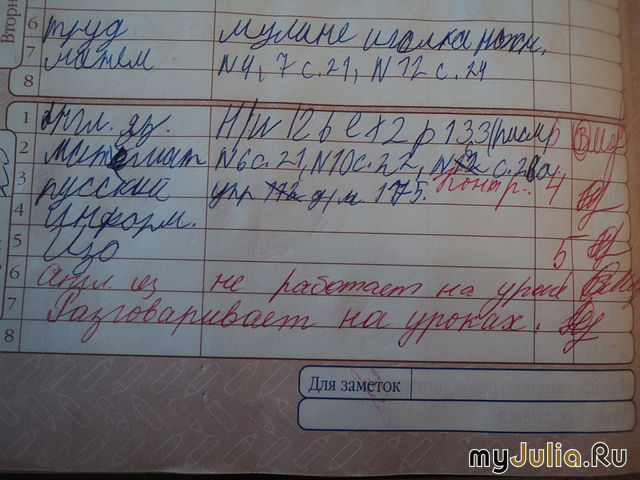 Вторн
6 труд мулине иголка ножн.
7 матем N4, 7 с. 21, N 12 с. 21
8
1 Англ. яз. H/w 12 b ex 2 p 133
2 Математ N6 с. 21, N10 с. 22, с. 20
3 русский упр д/м. 175. Контр. 4
4 Информ.
5 Изо 5
6 Англ. яз не работает на уроке
7 Разговаривает на уроках.
8
Для заметок
myJulia.Ru